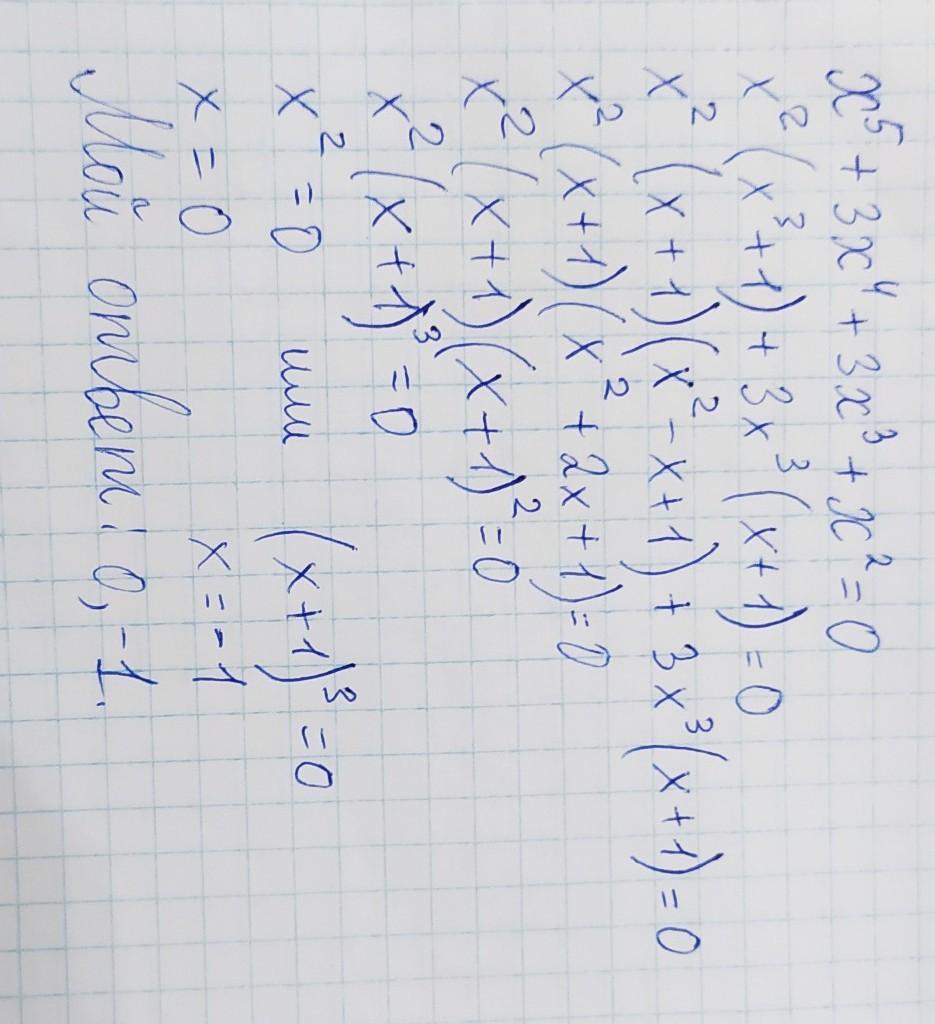 x⁵ + 3x⁴ + 3x³ + x² = 0
x²(x³+1) + 3x³(x+1) = 0
x²(x+1)(x²-x+1) + 3x³(x+1) = 0
x²(x+1)(x²+2x+1) = 0
x²(x+1)(x+1)² = 0
x²(x+1)³ = 0
x² = 0 или (x+1)³ = 0
x = 0 x = -1
Мой ответ: 0, -1.